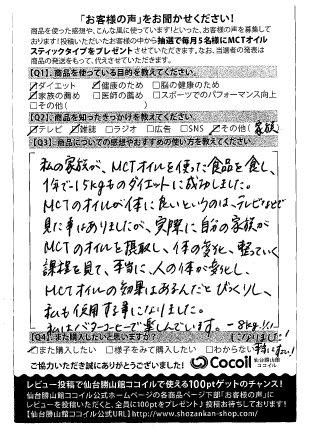 「お客様の声」をお聞かせください!
商品を使った感想や、こんな風に使っています!といった、お客様の声を募集して
おります!投稿いただいたお客様の中から抽選で毎月5名様にMCTオイル
スティックタイプをプレゼントさせていただきます。なお、当選者の発表は
商品の発送をもって、代えさせていただきます。
【Q1】. 商品を使っている目的を教えてください。
☑ダイエット ☑健康のため □脳の健康のため
☑家族の薦め □医師の薦め □スポーツでのパフォーマンス向上
□その他( )
【Q2】. 商品を知ったきっかけを教えてください。
☑テレビ ☑雑誌 □ラジオ □広告 □SNS ☑その他(家族)
【Q3】. 商品についての感想やおすすめの使い方を教えてください。
私の家族が、MCTオイルを使った食品を食し、
1年で15kgものダイエットに成功しました。
MCTのオイルが体に良いというのは、テレビなどで
見た事はありましたが、実際に自分の家族が
MCTのオイルを摂取し、体の変化、整っていく
課程を見て、本当に、人の体が変化し、
MCTオイルの効果はあるんだとびっくりし、
私も使用する事になりました。
私はバターコーヒーで楽しんでいます。-8kg!!
になりました!
【Q4】. また購入したいと思いますか?
☑また購入したい □様子をみて購入したい □わからない
ご協力いただき誠にありがとうございました!
Cocoil
仙台勝山館
ココイル
レビュー投稿で仙台勝山館ココイルで使える100ptゲットのチャンス!
仙台勝山館ココイル公式ホームページの各商品ページ下部「お客様の声」から
レビューを投稿いただくと、全員に100ptをプレゼント♪投稿お待ちしております!
【仙台勝山館ココイル公式URL】http://www.shozankan-shop.com/